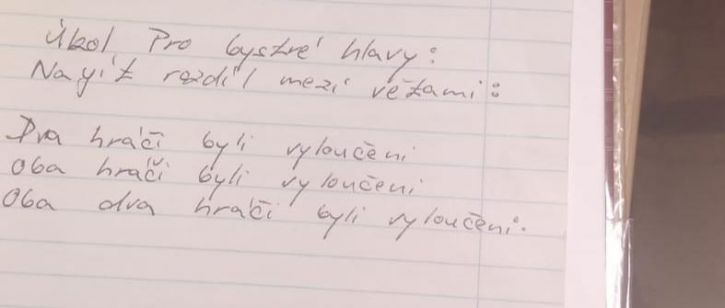 Úkol Pro bystré hlavy:
Nagít rozdíl mezi větami:
Dva hráči byli vyloučeni
Oba hráči byli vyloučeni
Oba dva hráči byli vyloučeni.